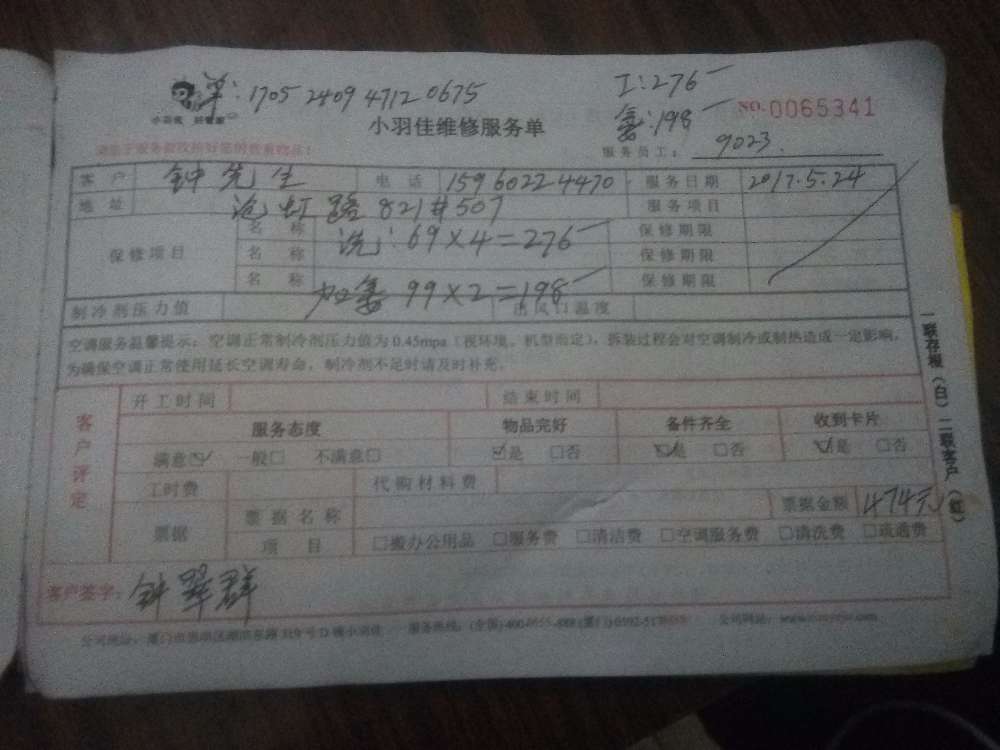 单:1705 2409 4712 0675
工:276
氟:198
NO.0065341
小羽佳 好管家
小羽佳维修服务单
服务员工: 9023
客户 钟先生 电话 15960224470 服务日期 2017.5.24
地址 沧虹路821#507 服务项目
保修项目 名称 洗:69×4=276 保修期限
名称 保修期限
名称 加氟 99×2=198 保修期限
制冷剂压力值 出风口温度
空调服务温馨提示:空调正常制冷剂压力值为0.45mpa(视环境、机型而定),拆装过程会对空调制冷或制热造成一定影响,
为确保空调正常使用延长空调寿命,制冷剂不足时请及时补充。
一联存根(白)二联客户(红)
客户评定
开工时间 结束时间
服务态度 物品完好 备件齐全 收到卡片
满意☑ 一般□ 不满意□ ☑是 □否 ☑是 □否 ☑是 □否
工时费 代购材料费
票据 票据名称 票据金额 474元
项目 □搬办公用品 □服务费 □清洁费 □空调服务费 □清洗费 □疏通费
客户签字:钟翠群
公司地址: 319号D幢小羽佳 服务热线:(全国)400 公司网站: